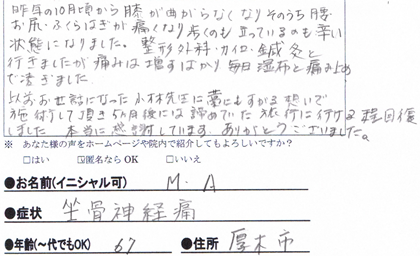 昨年の10月頃から膝が曲がらなくなりそのうち腰
お尻・ふくらはぎが痛くなり歩くのも立っているのも辛い
状態になりました。整形外科・カイロ・鍼灸と
行きましたが痛みは増すばかり毎日湿布と痛み止め
で過ぎました
以前お世話になった小林先生に藁にもすがる想いで
施術して頂き5ヵ月後には諦めていた旅行に行ける程回復
しました 本当に感謝しています。ありがとうございました。
※ あなた様の声をホームページや院内で紹介してもよろしいですか?
□はい ☑匿名ならOK □いいえ
●お名前(イニシャル可) M・A
●症状 坐骨神経痛
●年齢(~代でもOK) 67 ●住所 厚木市